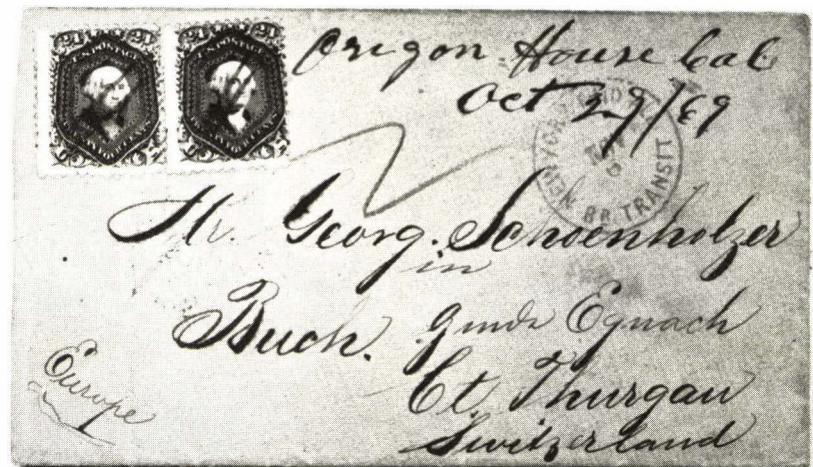 24 U.S. POSTAGE 24
24 U.S. POSTAGE 24
Oregon House Cal
Oct 29/69
NEW YORK
BR TRANSIT
Mr. Georg. Schoenholzer
in
Buch. Gmde Egnach
Ct. Thurgau
Switzerland
Europe